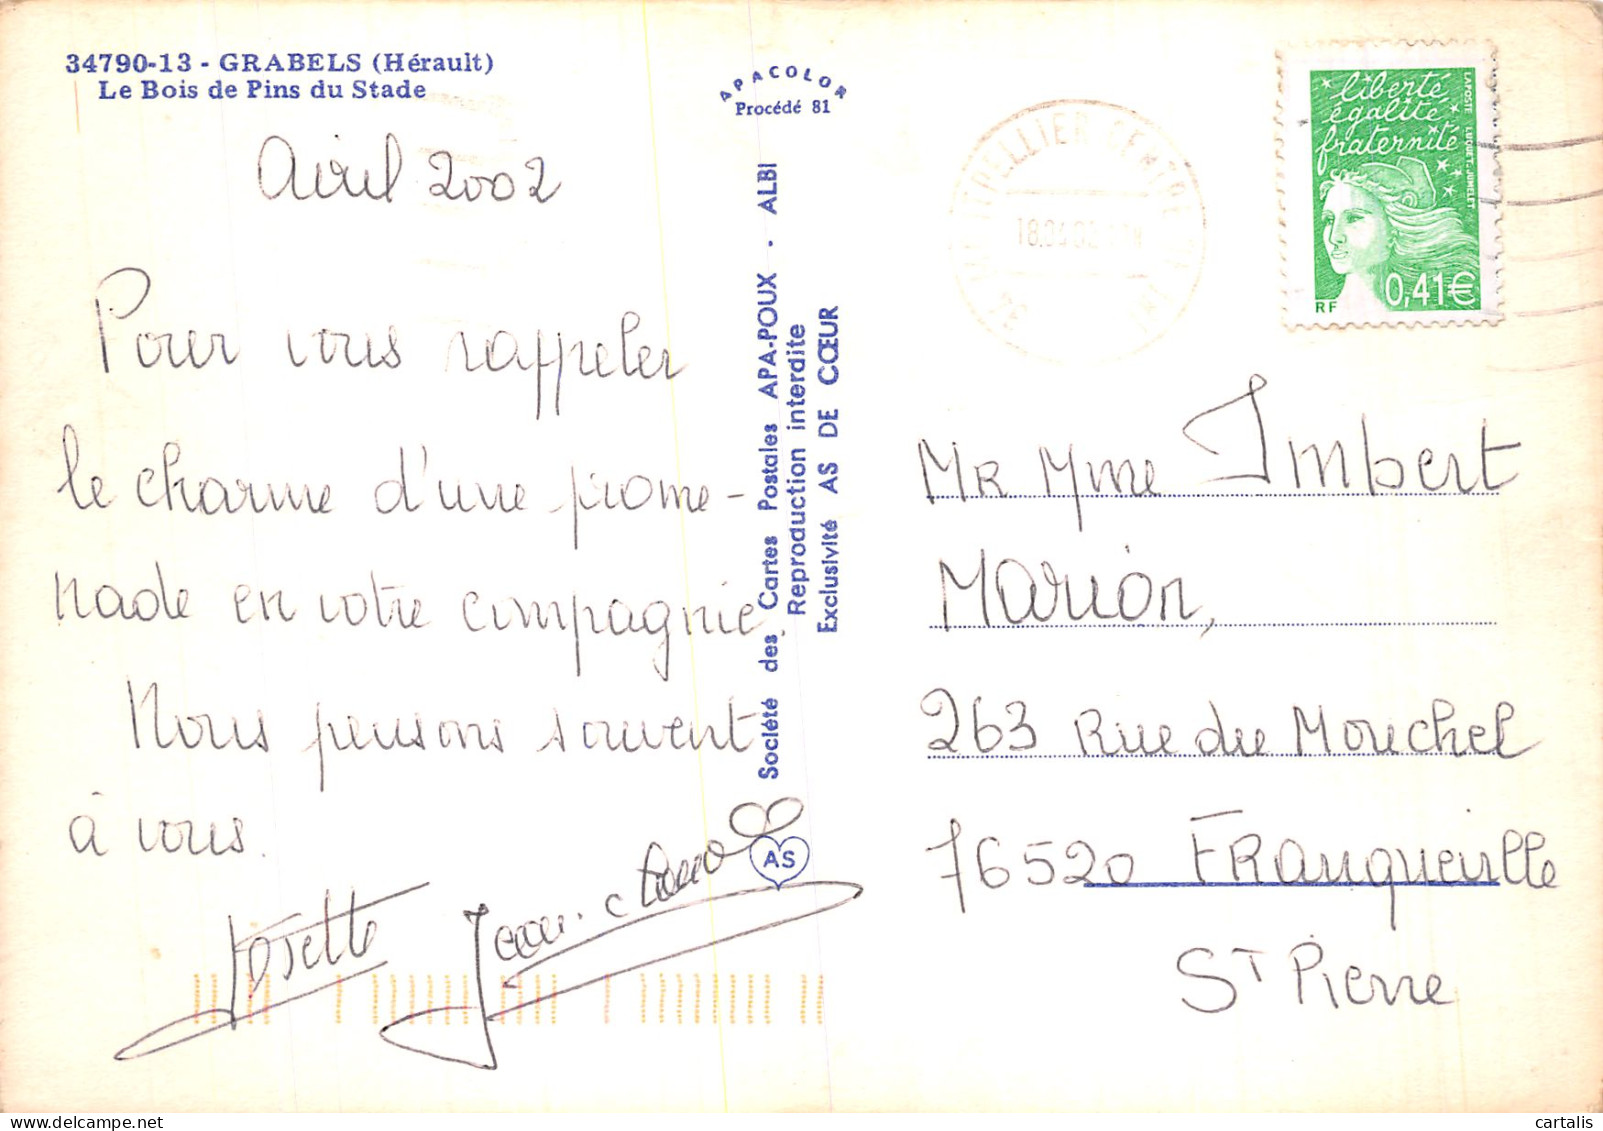 34790-13 - GRABELS (Hérault)
Le Bois de Pins du Stade
APACOLOR
Procédé 81
Avril 2002
Pour vous rappeler
le charme d'une prome-
nade en votre compagnie.
Nous pensons souvent
à vous.
Josette Jean-claude
Société des Cartes Postales APA-POUX - ALBI
Reproduction interdite
Exclusivité AS DE CŒUR
AS
MONTPELLIER CENTRE
18.04.02
liberté
égalité
fraternité
LAPOSTE LUQUET.JUMELET
RF
0,41€
Mr Mme Imbert
Marion,
263 Rue du Mouchel
76520 Franqueville
St Pierre
cartalis